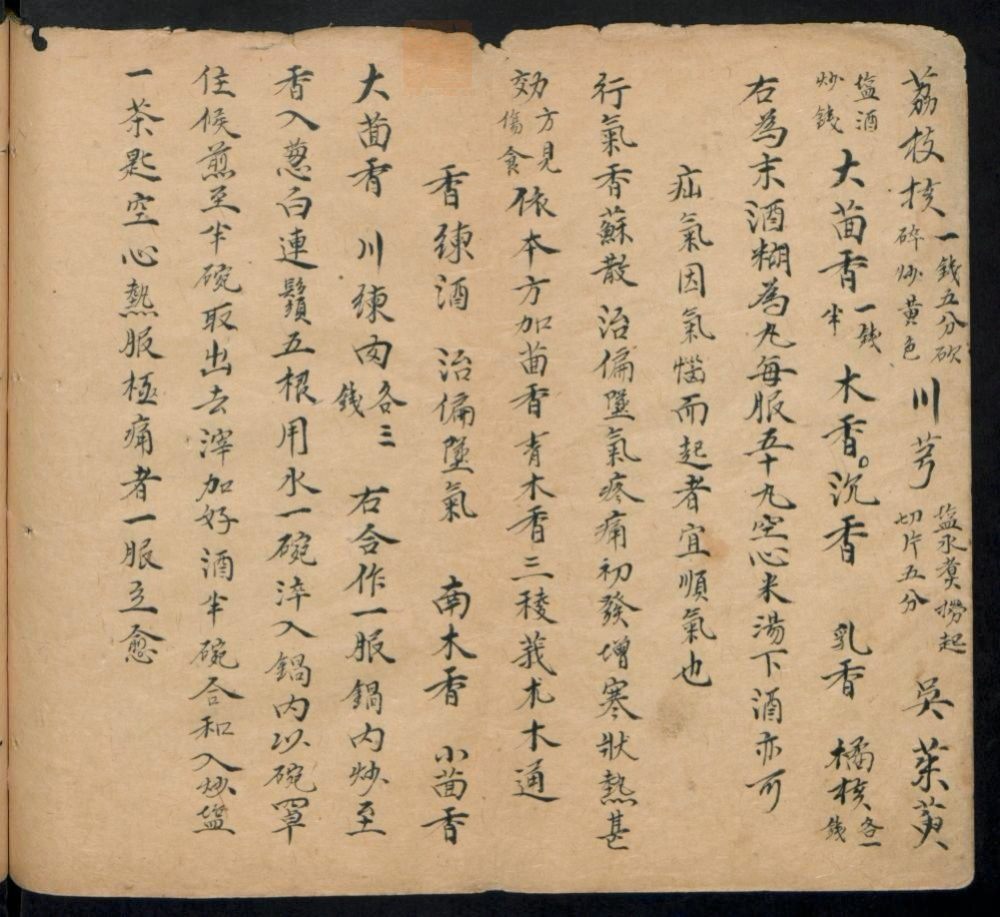 荔枝核一錢五分砍碎炒黃色川芎塩水煑撈起切片五分吳茱萸
塩酒炒錢大茴香一錢半木香。沉香乳香橘核各一錢
右為末酒糊為丸每服五十九空心米湯下酒亦可
疝氣因氣惱而起者宜順氣也
行氣香蘇散治偏墜氣疼痛初發增寒狀熱甚
効方見傷食依本方加茴香青木香三稜莪朮木通
香練酒治偏墜氣南木香小茴香
大茴香川練肉各三錢右合作一服鍋內炒至
香入葱白連鬚五根用水一碗淬入鍋內以碗罩
住候煎至半碗取出去滓加好酒半碗合和入炒塩
一茶匙空心熱服極痛者一服立愈